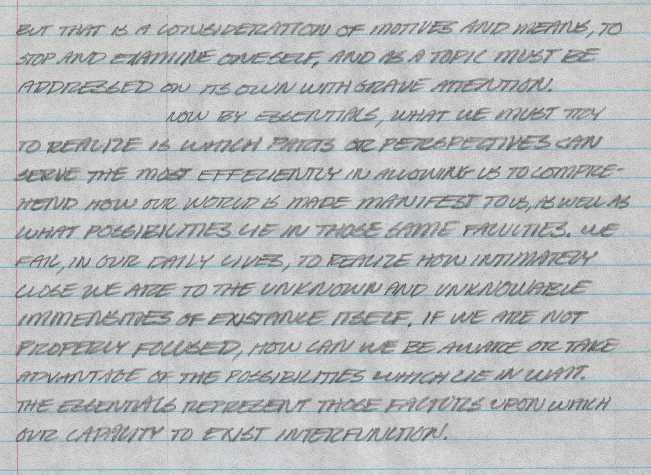 BUT THAT IS A CONSIDERATION OF MOTIVES AND MEANS, TO
STOP AND EXAMINE ONESELF, AND AS A TOPIC MUST BE
ADDRESSED ON ITS OWN WITH GRAVE ATTENTION.
NOW BY ESSENTIALS, WHAT WE MUST TRY
TO REALIZE IS WHICH PARTS OR PERSPECTIVES CAN
SERVE THE MOST EFFECIENTLY IN ALLOWING US TO COMPRE-
HEND HOW OUR WORLD IS MADE MANIFEST TO US, AS WELL AS
WHAT POSSIBILITIES LIE IN THOSE SAME FACULTIES. WE
FAIL, IN OUR DAILY LIVES, TO REALIZE HOW INTIMATELY
CLOSE WE ARE TO THE UNKNOWN AND UNKNOWABLE
IMMENSITIES OF EXISTANCE ITSELF. IF WE ARE NOT
PROPERLY FOCUSED, HOW CAN WE BE AWARE OR TAKE
ADVANTAGE OF THE POSSIBILITIES WHICH LIE IN WAIT.
THE ESSENTIALS REPRESENT THOSE FACTORS UPON WHICH
OUR CAPACITY TO EXIST INTERFUNCTION.